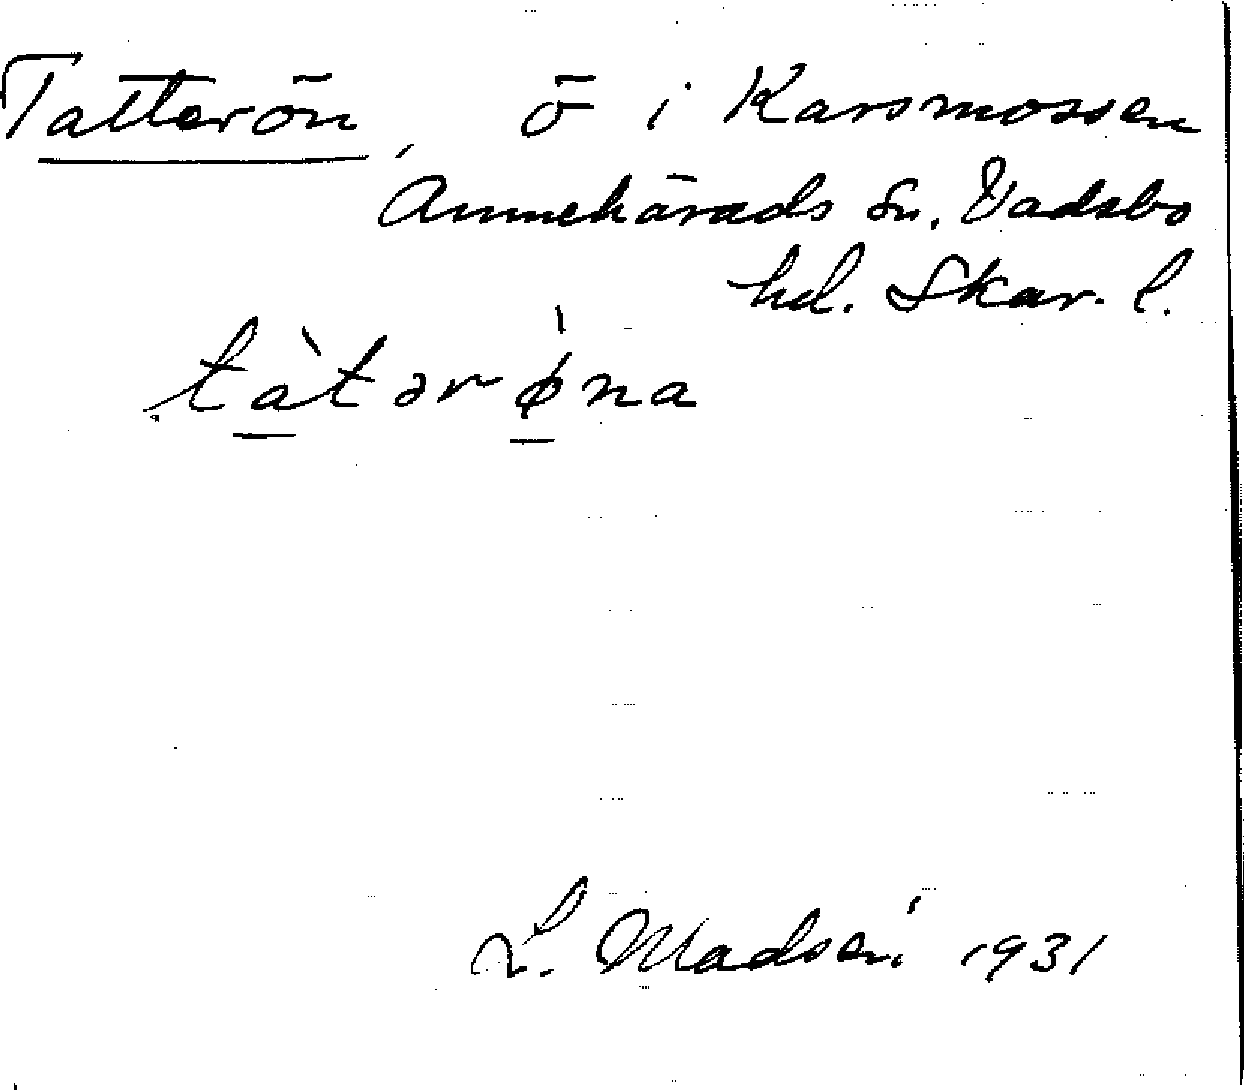 Tatterön, ö i Karsmossen
Amnehärads sn. Vadsbo
hd. Skar. l.
tàtərø̍na
L. Madsén 1931